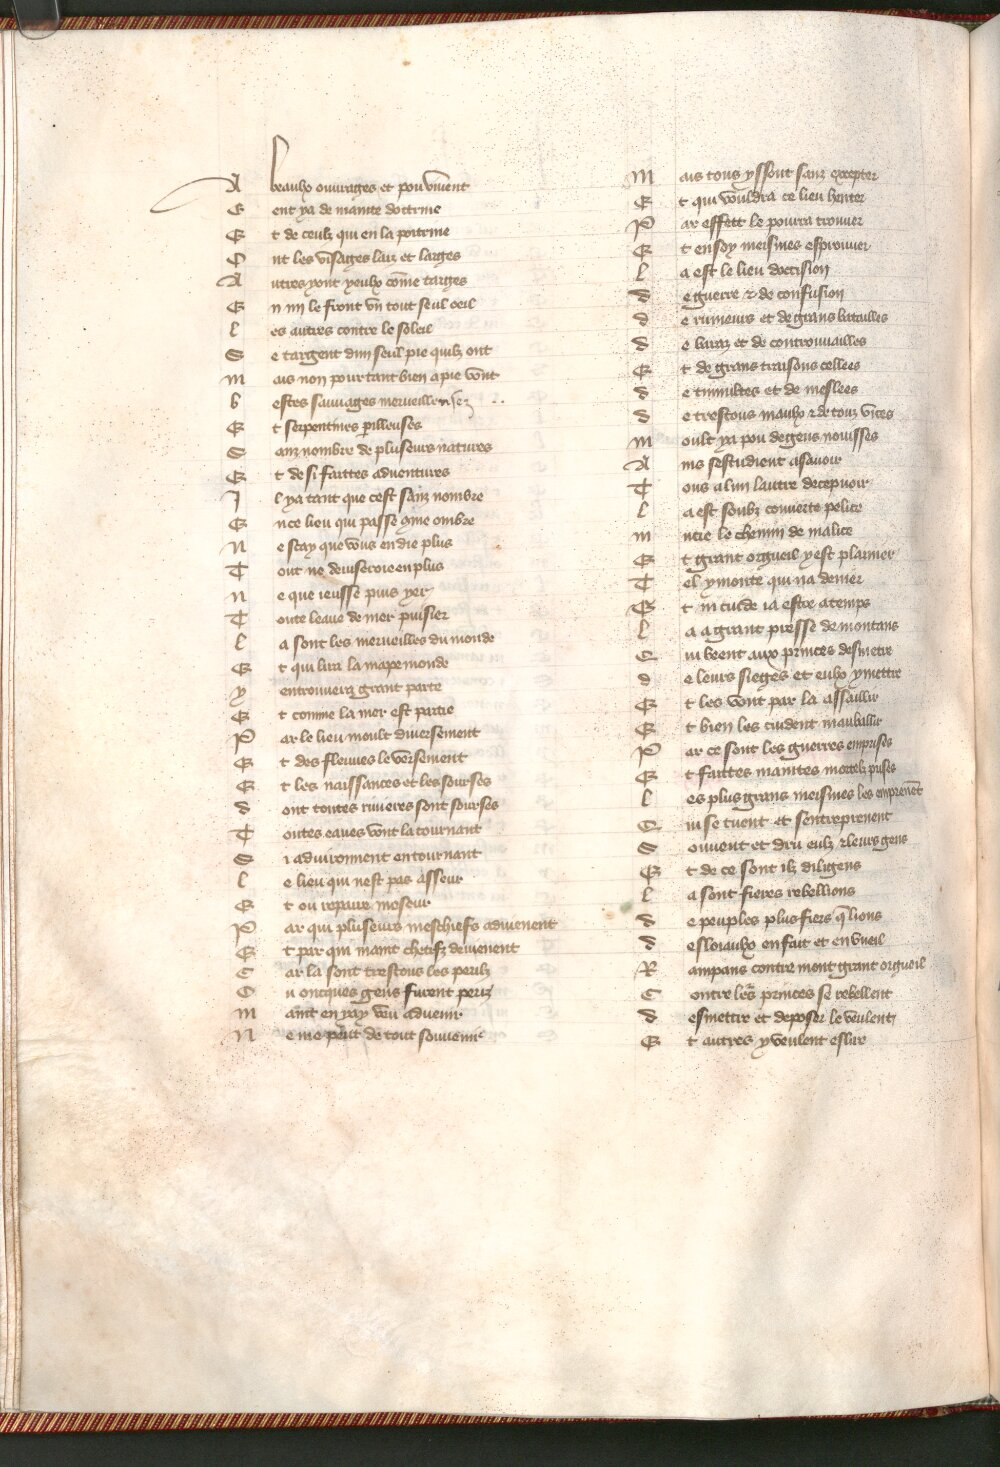 A beaulx ouvrages et pou vivent
Gent ya de mainte doctrine
Et de ceulx qui en la poitrine
Ont les visages laiz et larges
Autres yont yeulx comme targes
En mi le front un tout seul oeil
Les autres contre le soleil
Se targent dun seul pie quilz ont
Mais non pourtant bien a pie vont
bestes sauvages merveilleuses
Et serpentines perilleuses
Sanz nombre de pluseurs natures
Et de si faittes adventures
Il ya tant que cest sanz nombre
En ce lieu qui passe come ombre
Ne scay que vous en die plus
Tout ne deviseroie en plus
ne que ieusse puis yer
Toute leaue de mer puisier
La sont les merveilles du monde
Et qui lira la mapemonde
y en trouvera grant partie
Et comme la mer est partie
Par le lieu moult diversement
Et des fleuves le versement
Et les naissances et les sourses
dont toutes rivieres sont sourses
Toutes eaues vont la tournant
Si advironnent en tournant
Le lieu qui nest pas asseur
Et ou repaire meseur
Par qui pluseurs meschiefs adviennent
Et par qui maint chetifz deviennent
Car la sont trestous les perilz
Ou oncques gens furent periz
maint en yay veu advenir
Ne me peut de tout souvenir
Mais tous yssont sanz excepter
Et qui vouldra ce lieu henter
Par effett le pourra trouver
Et en soy meismes esprouver
La est le lieu doccision
de guerre et de confusion
de rumeurs et de grans batailles
de baraz et de controuvailles
Et de grans traisons cellees
de tumultes et de meslees
de trestous maulx et de touz vices
moult ya pou de gens nouisses
Ains sestudient a savoir
Tous a lun lautre decepvoir
La est soubz couverte pelice
mucie le chemin de malice
Et grant orgueil yest plainier
Tel ymonte qui na denier
Et ni cuide ia estre a temps
La a grant presse de montans
Qui beent aux princes desmetre
de leurs sieges et eulx ymettre
Et les vont par la assaillir
Et bien les cuident maubaillir
Par ce sont les guerres emprises
Et faittes maintes mortelz prises
Les plus grans meismes les emprenent
Qui se tuent et sentreprenent
Souvent et dru eulx et leurs gens
Et de ce sont ilz diligens
La sont fieres rebellions
de peuples plus fiers que lions
desloiaulx en fait et en vueil
Rampans contremont grant orgueil
Contre leurs princes se rebellent
desmettre et deposer le veulent
Et autres y veulent eslire